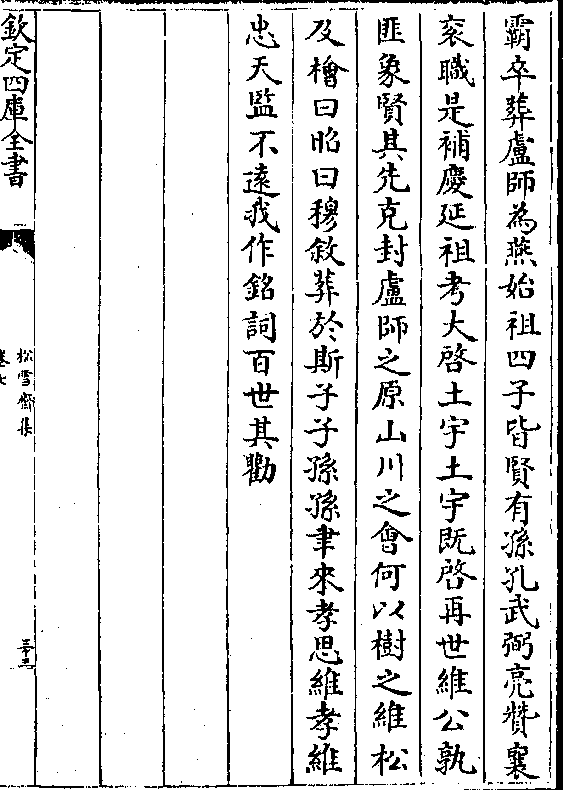 霸卒葬盧師為燕始祖四子皆賢有孫孔武弼亮賛襄
衮職是補慶延祖考大啓土宇土宇既啓再世維公孰
匪象賢其先克封盧師之原山川之會何以樹之維松
及檜曰昭曰穆敘葬於斯子子孫孫聿來孝思維孝維
忠天監不遠我作銘詞百世其勸
欽定四庫全書
松雪齋集
卷七
三十五